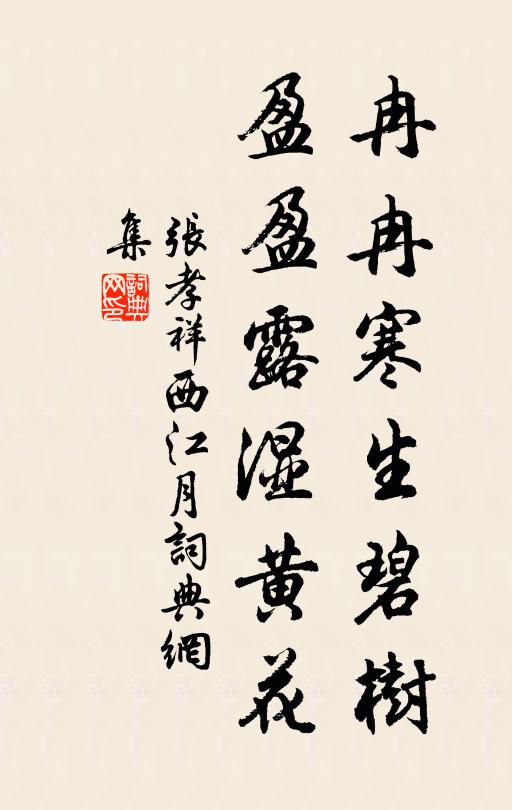 冉冉寒生碧樹
盈盈露湿黄花
張孝祥西江月詞典網
集
詞典网印